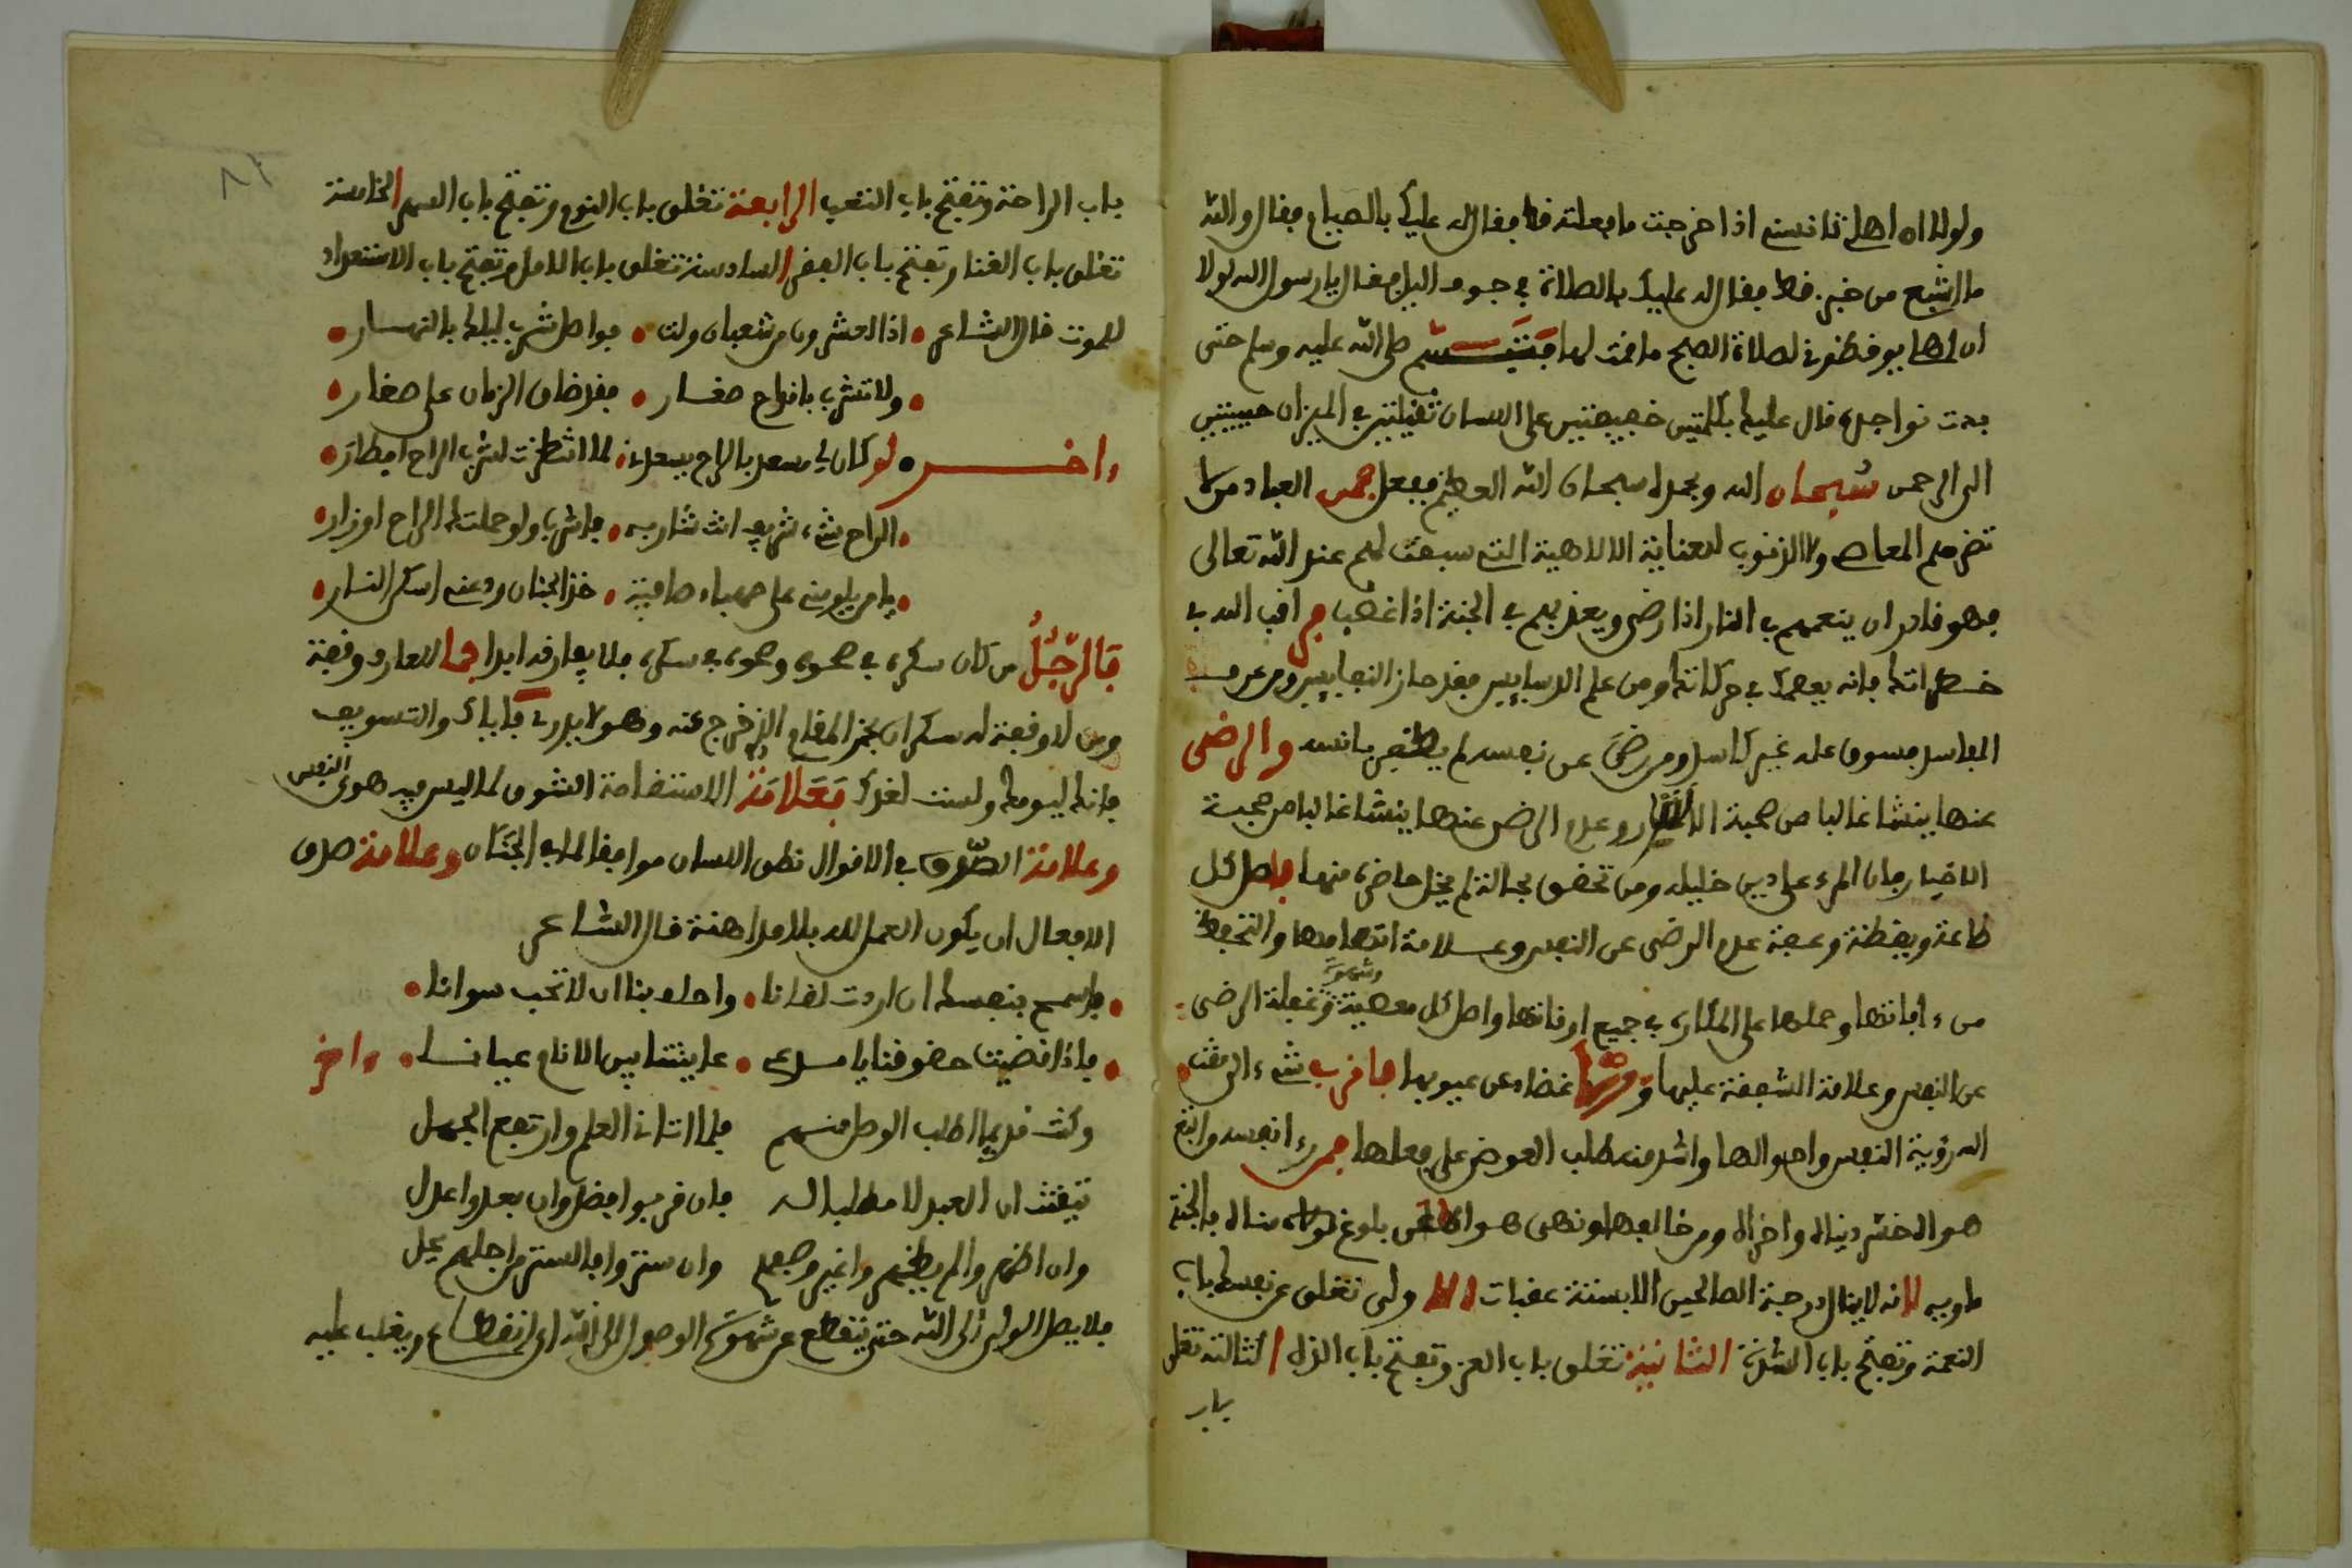 ولولا ان اهلي تانسني اذا خرجت ما فعلته قط فقال له عليك بالصيام فقال والله
ما اشبع من خبز قط فقال له عليك بالصلاة في جوف اليل فقال يا رسول الله لولا
ان اهلي يوقظوني لصلاة الصبح ما قمت لها فتبسم صلى الله عليه وسلم حتى
بدت نواجده قال عليك بكلمتين خفيفتين على اللسان ثقيلتين في الميزان حبيبتين
الى الرحمن سبحان الله وبحمده سبحان الله العظيم فبعد فمن العباد من لا
تضرهم المعاصي ولا الذنوب للعناية الالاهية التي سبقت لهم عند الله تعالى
فهو قادر ان ينعمهم في النار اذا رضي ويعذبهم في الجنة اذا غضب من راقب الله في
خطراته فانه يعصمه في حركاته ومن علم الدسايس فقد حاز النفايس ومن عرف
المفاسد فسوق عمله غير كاسد ومن رضي عن نفسه لم يظفر بانسه والرضى
عنها ينشا غالبا من صحبة الاشرار وعدم الرضى عنها ينشا غالبا من صحبة
الاخيار فان المرء على دين خليله ومن تحقق بحالة لم يخل حاضره منها فاصل كل
طاعة ويقظة وعفة عدم الرضى عن النفس وعلامة اتهامها والتحفظ
من ءافاتها وحملها على المكاره في جميع اوقاتها واصل كل معصية وشهوة وغفلة الرضى
عن النفس وعلامة الشفقة عليها و غضاه عن عيوبها فما اقرب شيء الى مقت
الله رؤية النفس واحوالها واشد منه طلب العوض على فعلها فمن رءا نفسه واتبع
هواه خسر دنياه واخراه ومن خالفها ونهى هواها عن بلوغ مناه فالجنة
ماويه لانه لا ينال درجة الصالحين الا بستة عقبات الاولى تغلق عن نفسك باب
النعمة وتفتح باب الشدة الثانية تغلق باب العز وتفتح باب الذل الثالثة تغلق
باب
باب الراحة وتفتح باب التعب الرابعة تغلق باب النوم وتفتح باب السهر الخامسة
تغلق باب الغنا وتفتح باب الفقر السادسة تغلق باب الامل وتفتح باب الاستعداد
للموت قال الشاعر اذا العشرون من شعبان ولت فواصل شرب ليلك بالنهار
ولا تشرب باقداح صغار فقد ضاق الزمان على صغار
ءاخـــر لو كان لي مسعد بالراح يسعدني لما انتظرت لشرب الراح افطار
الراح شيء شريف انت شاربه فاشرب ولو حملتك الراح اوزار
يا من يلومني على صهباء صافية خذ الجنان ودعني اسكن النار
فالرجل من كان سكره في صحوه وصحوه في سكره فلا يفارقه ابدا فما للعارف وقفة
ومن لا وقفة له سكران بخمر المقام الذي خرج عنه وهو لا يدري فاياك والتسويف
فانك ليومك ولست لغدك فعلامة الاستقامة الشوق لما ليس فيه هوى النفس
وعلامة الصدق في الاقوال نطق اللسان موافقا لما في الجنان وعلامة صدق
الافعال ان يكون العمل لله بلا مداهنة قال الشاعر
فاسمح بنفسك ان اردت لقانا واحلف بنا ان لا تحب سوانا
فاذا قضيت حقوقنا يا مدعي عاينتنا بين الانام عيانا ءاخر
وكنت قديما اطلب الوصل منهم فلما اتاني العلم وارتفع الجهل
تيقنت ان العبد لا مطلب له فان قربوا فضل وان بعدوا عدل
وان اظهروا لم يظهروا غير وصفهم وان ستروا فالستر من اجلهم يحل
فلا يصل الولي الى الله حتى تنقطع عن شهوة الوصول الى الله اي انقطاع ويغلب عليه